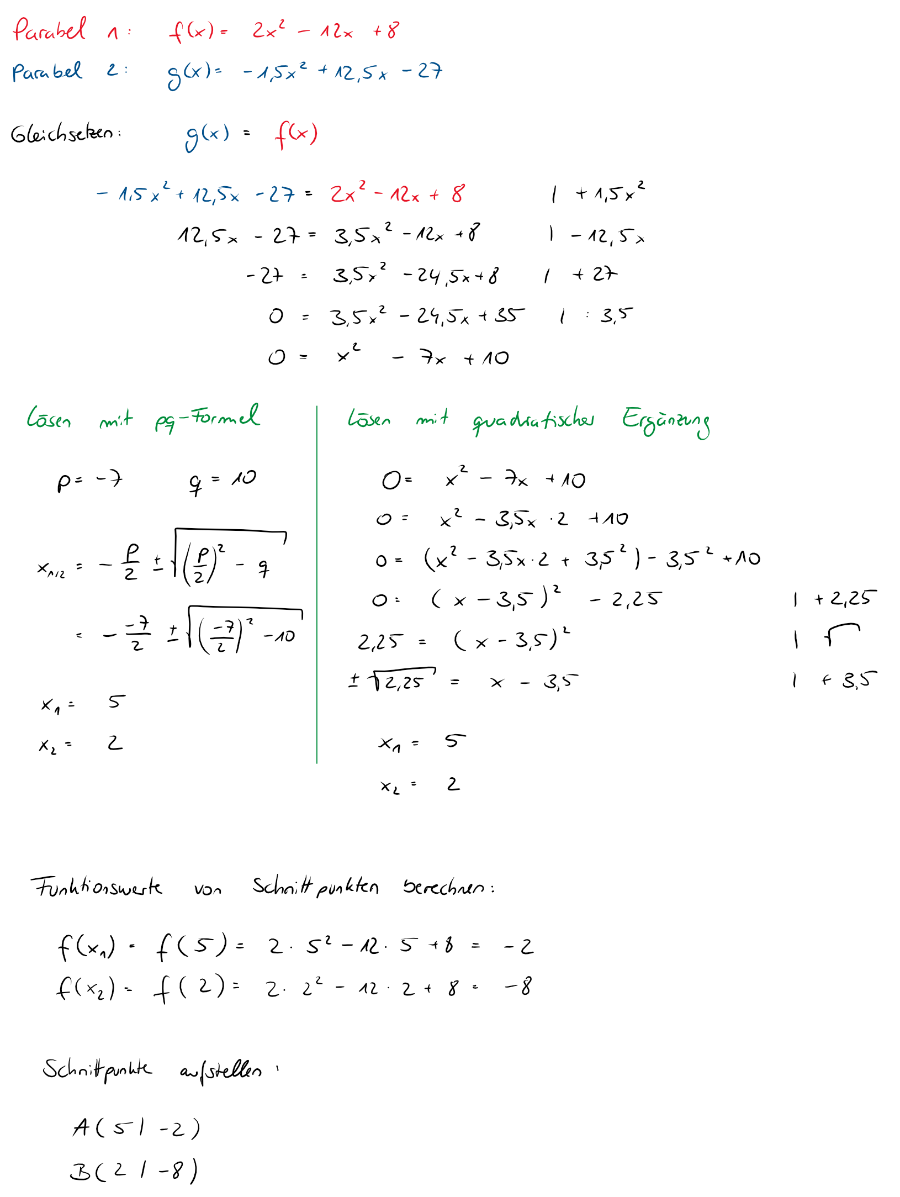 Parabel 1: f(x) = 2x² - 12x + 8
Parabel 2: g(x) = -1,5x² + 12,5x - 27
Gleichsetzen: g(x) = f(x)
-1,5x² + 12,5x - 27 = 2x² - 12x + 8 | + 1,5x²
12,5x - 27 = 3,5x² - 12x + 8 | - 12,5x
-27 = 3,5x² - 24,5x + 8 | + 27
0 = 3,5x² - 24,5x + 35 | : 3,5
0 = x² - 7x + 10
Lösen mit pq-Formel
p = -7 q = 10
x₁/₂ = - p/2 ± √((p/2)² - q)
= - -7/2 ± √((-7/2)² - 10)
x₁ = 5
x₂ = 2
Lösen mit quadratischer Ergänzung
0 = x² - 7x + 10
0 = x² - 3,5x · 2 + 10
0 = (x² - 3,5x · 2 + 3,5²) - 3,5² + 10
0 = (x - 3,5)² - 2,25 | + 2,25
2,25 = (x - 3,5)² | √
± √2,25 = x - 3,5 | + 3,5
x₁ = 5
x₂ = 2
Funktionswerte von Schnittpunkten berechnen:
f(x₁) = f(5) = 2 · 5² - 12 · 5 + 8 = -2
f(x₂) = f(2) = 2 · 2² - 12 · 2 + 8 = -8
Schnittpunkte aufstellen:
A(5 | -2)
B(2 | -8)